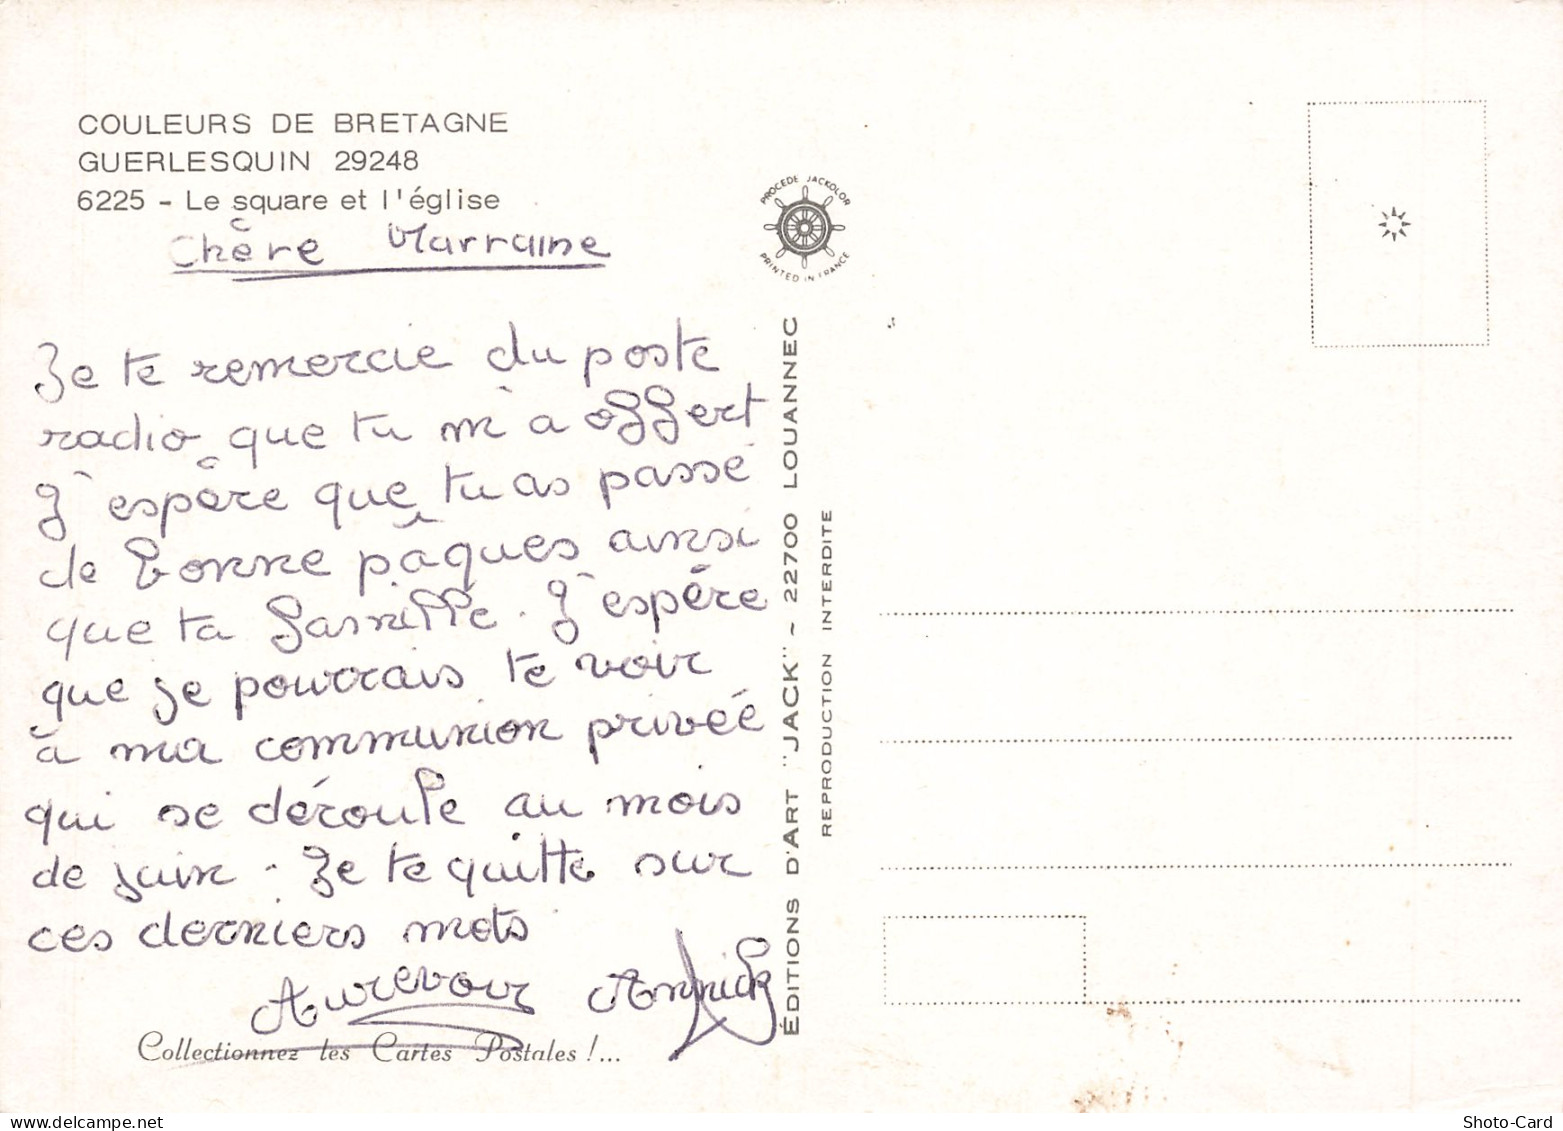 COULEURS DE BRETAGNE
GUERLESQUIN 29248
6225 - Le square et l'église
Chère Marraine
Je te remercie du poste
radio que tu m'a offert
J'espère que tu as passé
de bonne pâques ainsi
que ta famille. J'espère
que je pourrais te voir
à ma communion privée
qui se déroule au mois
de juin. Je te quitte sur
ces derniers mots
Aurevoir Annick
Collectionnez les Cartes Postales !...
PROCEDE JACKOLOR
PRINTED IN FRANCE
ÉDITIONS D'ART "JACK" - 22700 LOUANNEC
REPRODUCTION INTERDITE
Shoto-Card